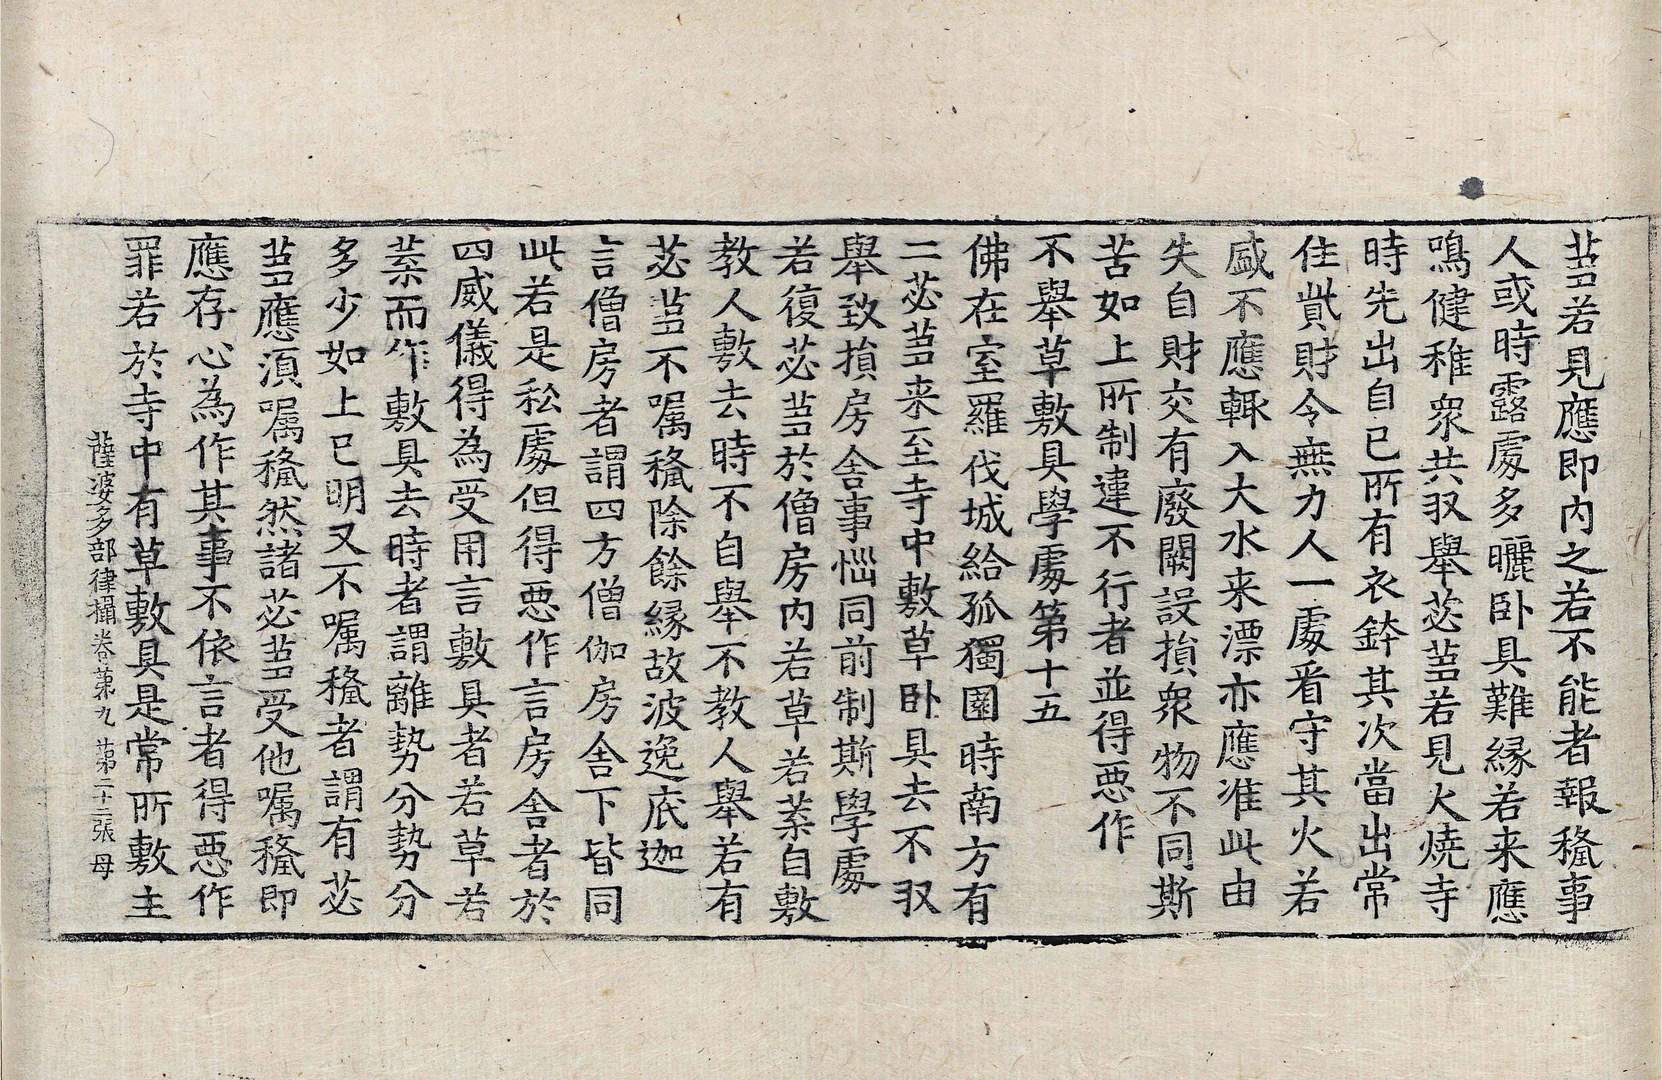 蒭若見應即內之若不能者報㩲事
人或時露處多曬卧具難緣若来應
鳴健稚衆共収舉苾蒭若見火燒寺
時先出自已所有衣鉢其次當出常
住貲財令無力人一處看守其火若
盛不應輙入大水来漂亦應准此由
失自財交有廢闕設損衆物不同斯
苦如上所制違不行者並得惡作
不舉草敷具學處第十五
佛在室羅伐城給孤獨園時南方有
二苾蒭来至寺中敷草卧具去不収
舉致損房舍事惱同前制斯學處
若復苾蒭於僧房內若草若菜自敷
教人敷去時不自舉不教人舉若有
苾蒭不囑授除餘緣故波逸底迦
言僧房者謂四方僧伽房舍下皆同
此若是私處但得惡作言房舍者於
四威儀得為受用言敷具者若草若
菜而作敷具去時者謂離勢分勢分
多少如上已明又不囑授者謂有苾
蒭應須囑授然諸苾蒭受他囑授即
應存心為作其事不依言者得惡作
罪若於寺中有草敷具是常所敷主
薩婆多部律攝卷第九 第二十三張 母